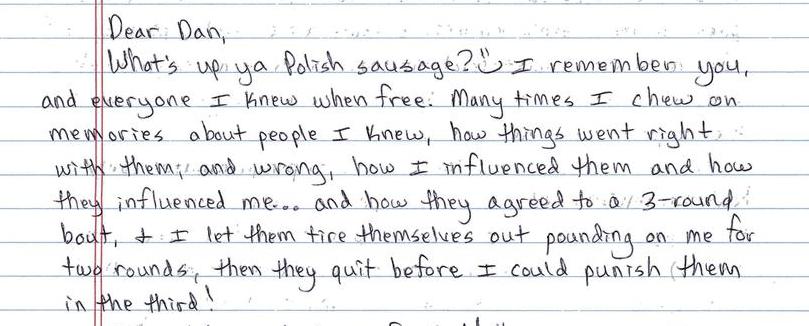 Dear Dan,
What's up ya Polish sausage? I remember you,
and everyone I knew when free. Many times I chew on
memories about people I knew, how things went right
with them, and wrong, how I influenced them and how
they influenced me... and how they agreed to a 3-round
bout, & I let them tire themselves out pounding on me for
two rounds, then they quit before I could punish them
in the third!